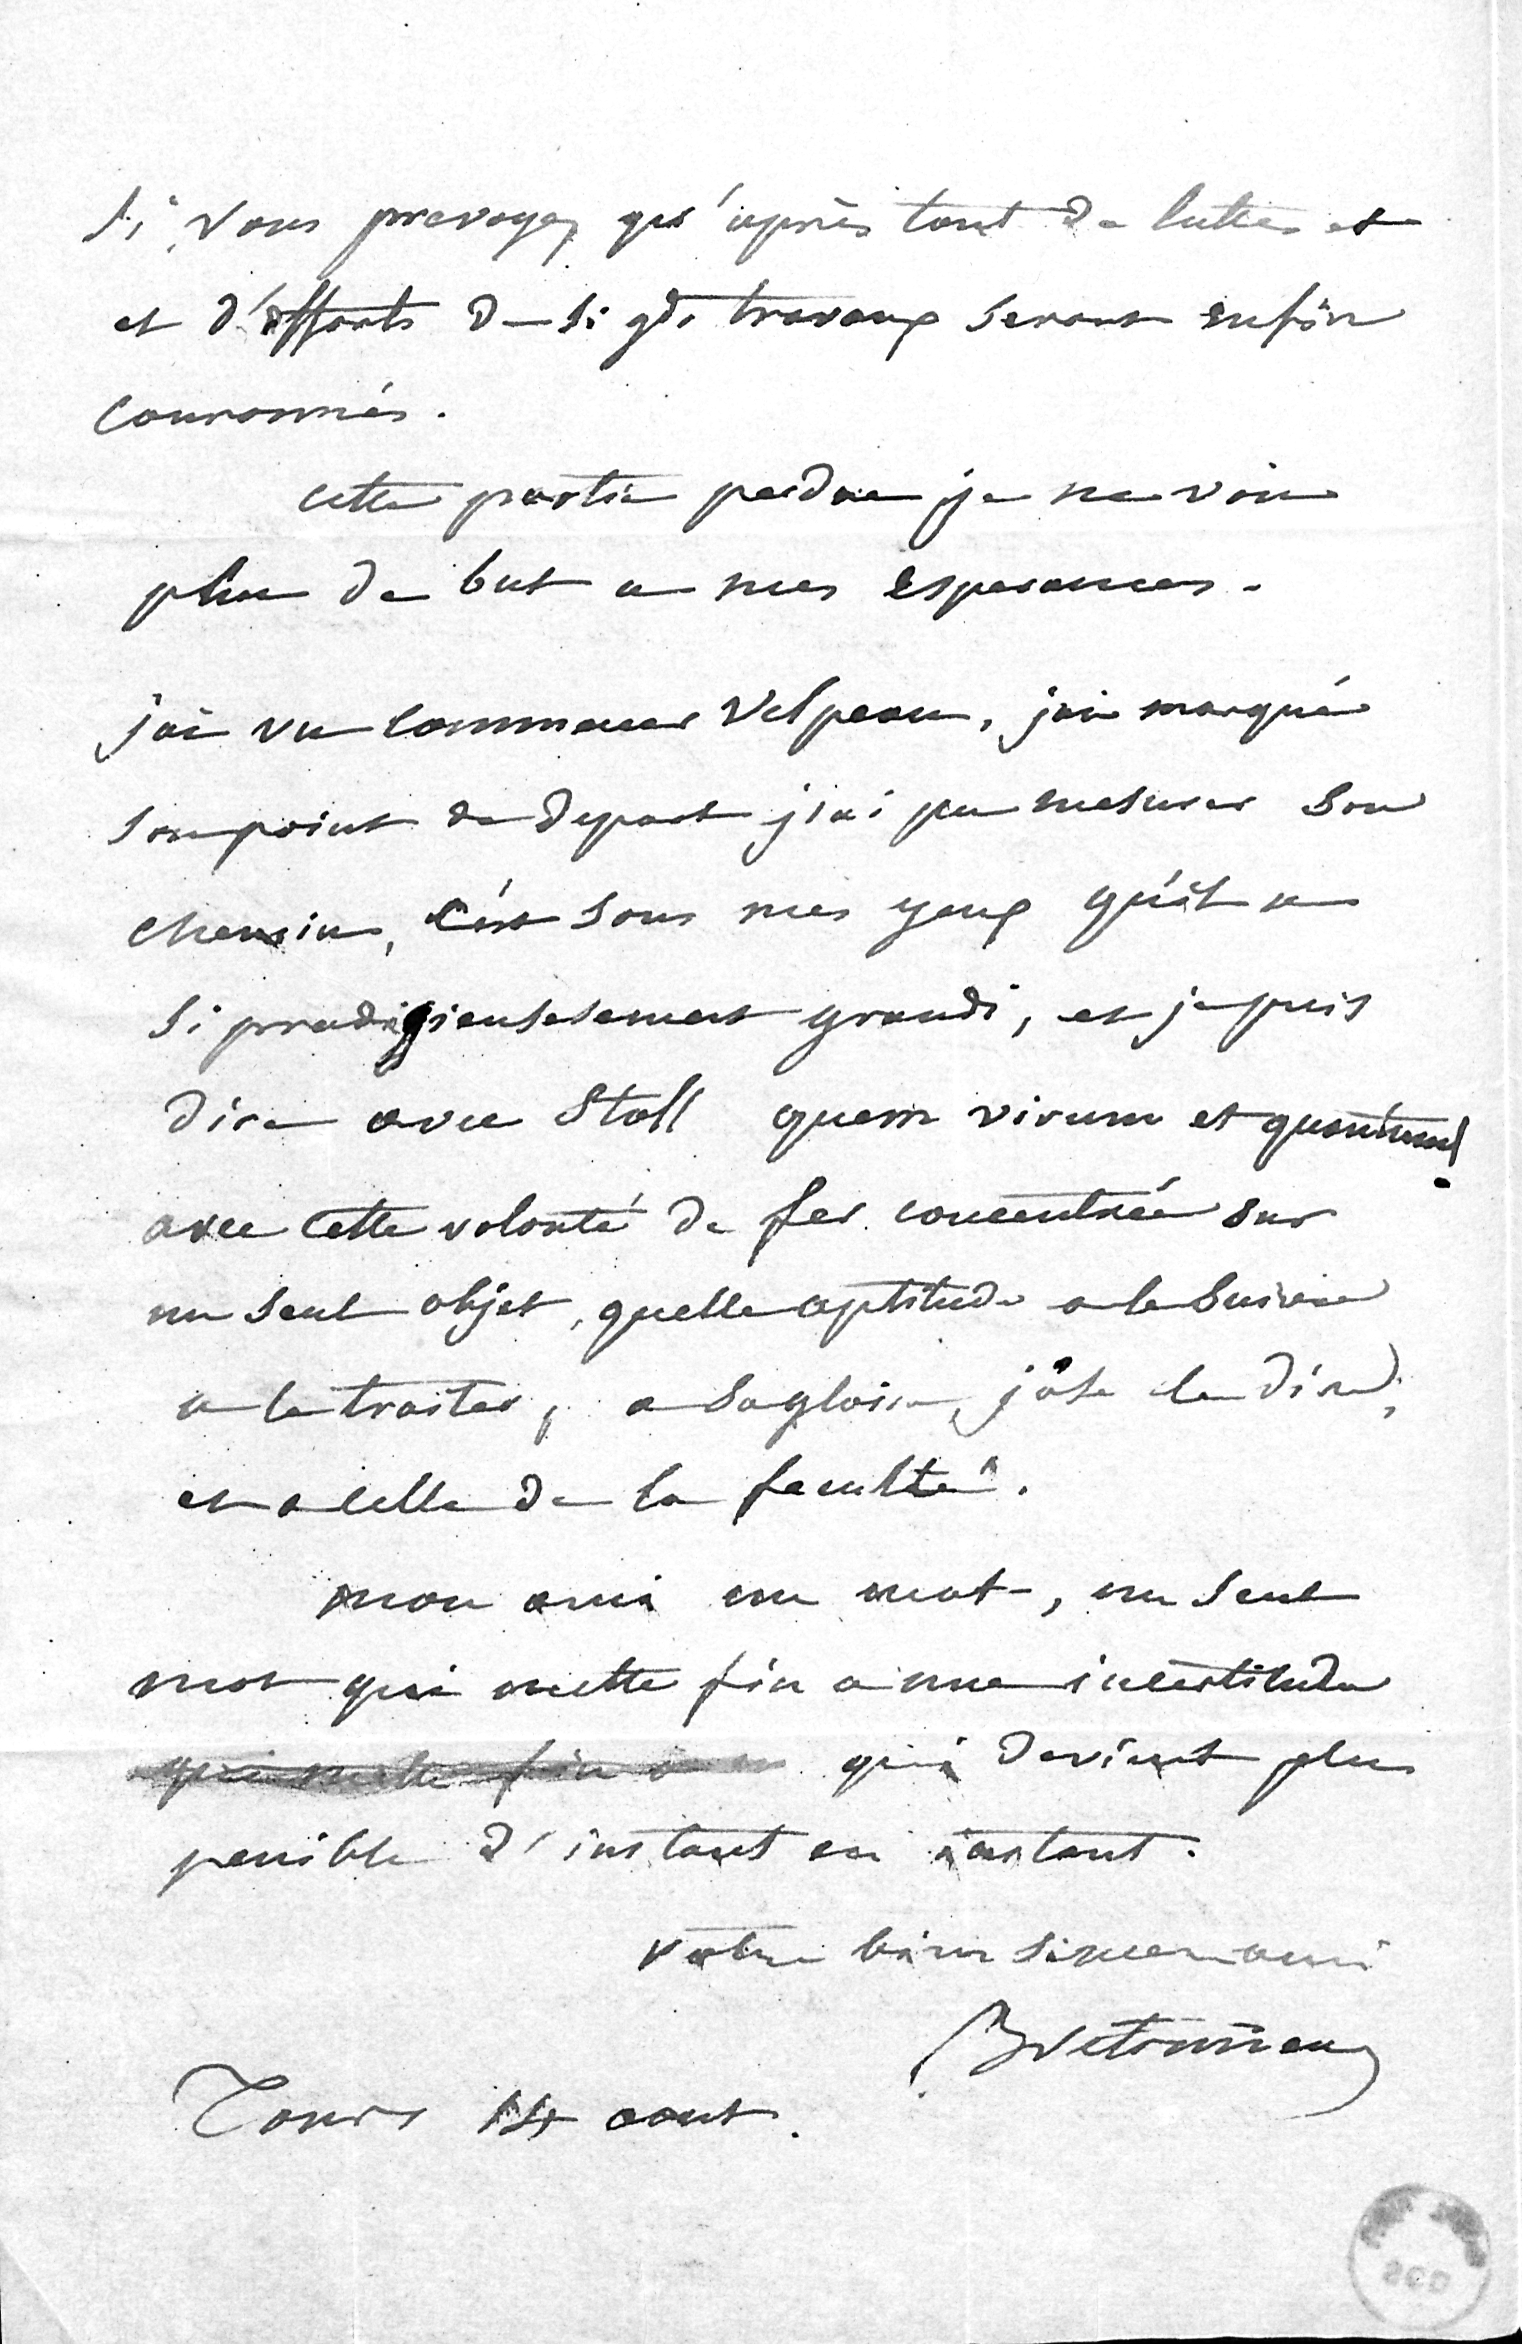 Si vous prevoyez qu'après tant de luttes et
et d'efforts de si gds travaux seront enfin
couronnés.
cette partie perdue je ne vois
plus de but a mes esperances.
j'ai vu commencer Velpeau, j'ai marqué
son point de depart j'ai pu mesurer son
chemin, c'est sous mes yeux qu'il a
si prodigieusement grandi, et je puis
dire avec Stoll quem virum et quantum!
avec cette volonté de fer concentrée sur
un seul objet, quelle aptitude a le suivre
a le traiter, a sa gloire, j'ose le dire,
et a celle de la faculté.
mon ami un mot, un seul
mot qui mette fin a une incertitude
qui mette fin a qui devient plus
penible d'instant en instant.
votre bien sincere ami
Bretonneau
Tours 14 aout.